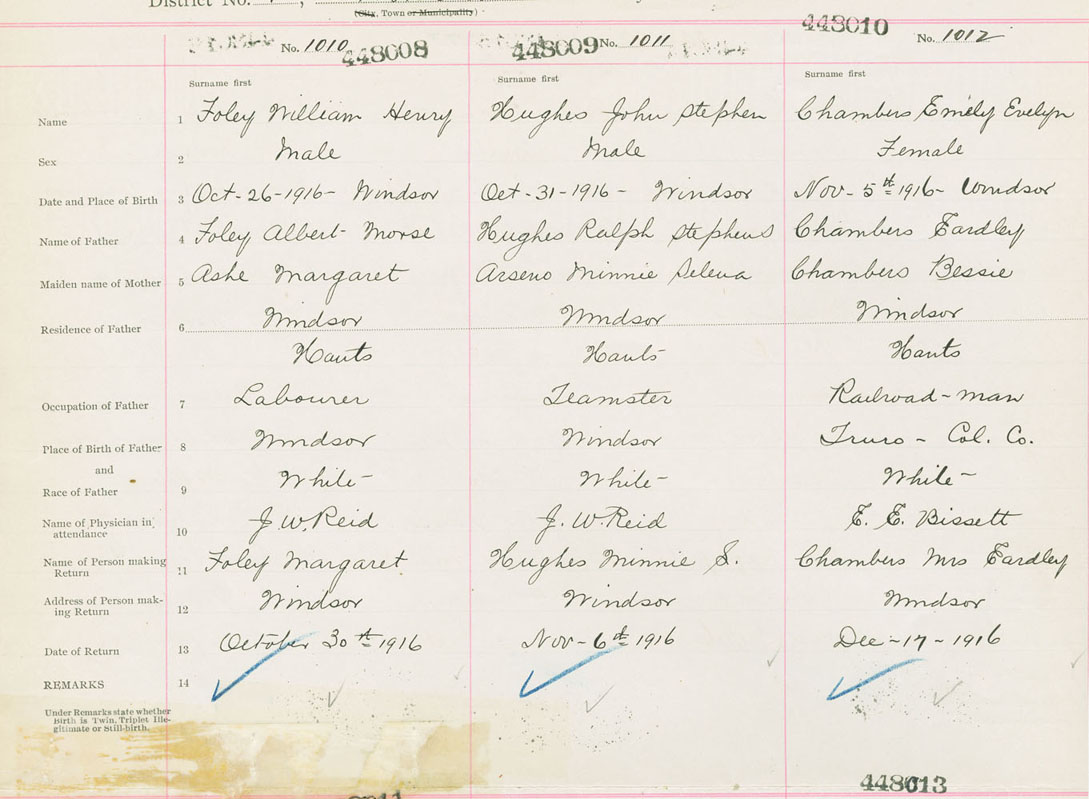 District No.
(City, Town or Municipality)
No. 1010 448008 448009 No. 1011 448010 No. 1012
Surname first Surname first Surname first
Name 1 Foley William Henry Hughes John Stephen Chambers Emily Evelyn
Sex 2 Male Male Female
Date and Place of Birth 3 Oct-26-1916- Windsor Oct-31-1916- Windsor Nov-5th 1916- Windsor
Name of Father 4 Foley Albert Morse Hughes Ralph Stephens Chambers Eardley
Maiden name of Mother 5 Ashe Margaret Arseno Minnie Selena Chambers Bessie
Residence of Father 6 Windsor Windsor Windsor
Hants Hants Hants
Occupation of Father 7 Labourer Teamster Railroad-man
Place of Birth of Father 8 Windsor Windsor Truro - Col. Co.
and
Race of Father 9 White- White- White-
Name of Physician in attendance 10 J. W. Reid J. W. Reid E. E. Bissett
Name of Person making Return 11 Foley Margaret Hughes Minnie S. Chambers Mrs Eardley
Address of Person making Return 12 Windsor Windsor Windsor
Date of Return 13 October 30th 1916 Nov-6th 1916 Dec-17-1916
REMARKS 14
Under Remarks state whether
Birth is Twin, Triplet Ille-
gitimate or Still-birth.
448013